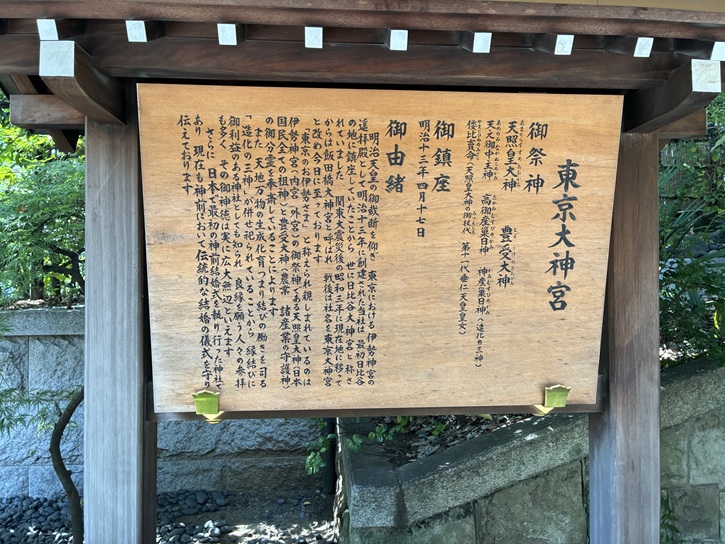 東京大神宮
御祭神
天照皇大神 豊受大神
天之御中主神 高御産巣日神 神産巣日神（造化の三神）
倭比賣命（天照皇大神の御杖代 第十一代垂仁天皇皇女）
御鎮座
明治十三年四月十七日
御由緒
明治天皇の御裁断を仰ぎ 東京における伊勢神宮の
遥拝殿として明治十三年に創建された当社は 最初日比谷
の地に鎮座していたことから 世に日比谷大神宮と称さ
れていました 関東大震災後の昭和三年に現在地に移って
からは飯田橋大神宮と呼ばれ 戦後は社名を東京大神宮
と改め今日に至っております
「東京のお伊勢さま」と称えられ親しまれているのは
伊勢神宮（内宮・外宮）の御祭神である天照皇大神（日本
国民の総氏神）と豊受大神（農業 諸産業の守護神）
の御分霊を奉斎していることによります
また 天地万物の生成化育つまり結びの働きを司る
「造化の三神」が併せ祀られていることから 縁結びに
御利益のある神社としても知られ 良縁を願う人々の参拝
も多く その御神徳は実に広大無辺といえます
さらに 日本で最初の神前結婚式を執り行った神社で
あり 現在も神前において伝統的な結婚の儀式を守り
伝えております